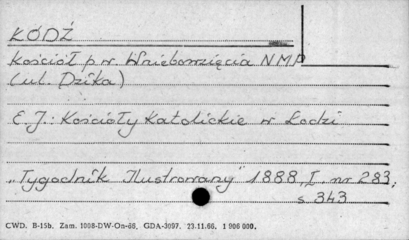 ŁÓDŹ
Kościół p.w. Wniebowzięcia NMP
(ul. Dzika)
E.J.: Kościoły Katolickie w Łodzi
„Tygodnik Ilustrowany" 1888, I. nr 283,
s. 343
CWD. B-15b. Zam. 1008-DW-On-66, GDA-3097. 23.11.66. 1 906 000.